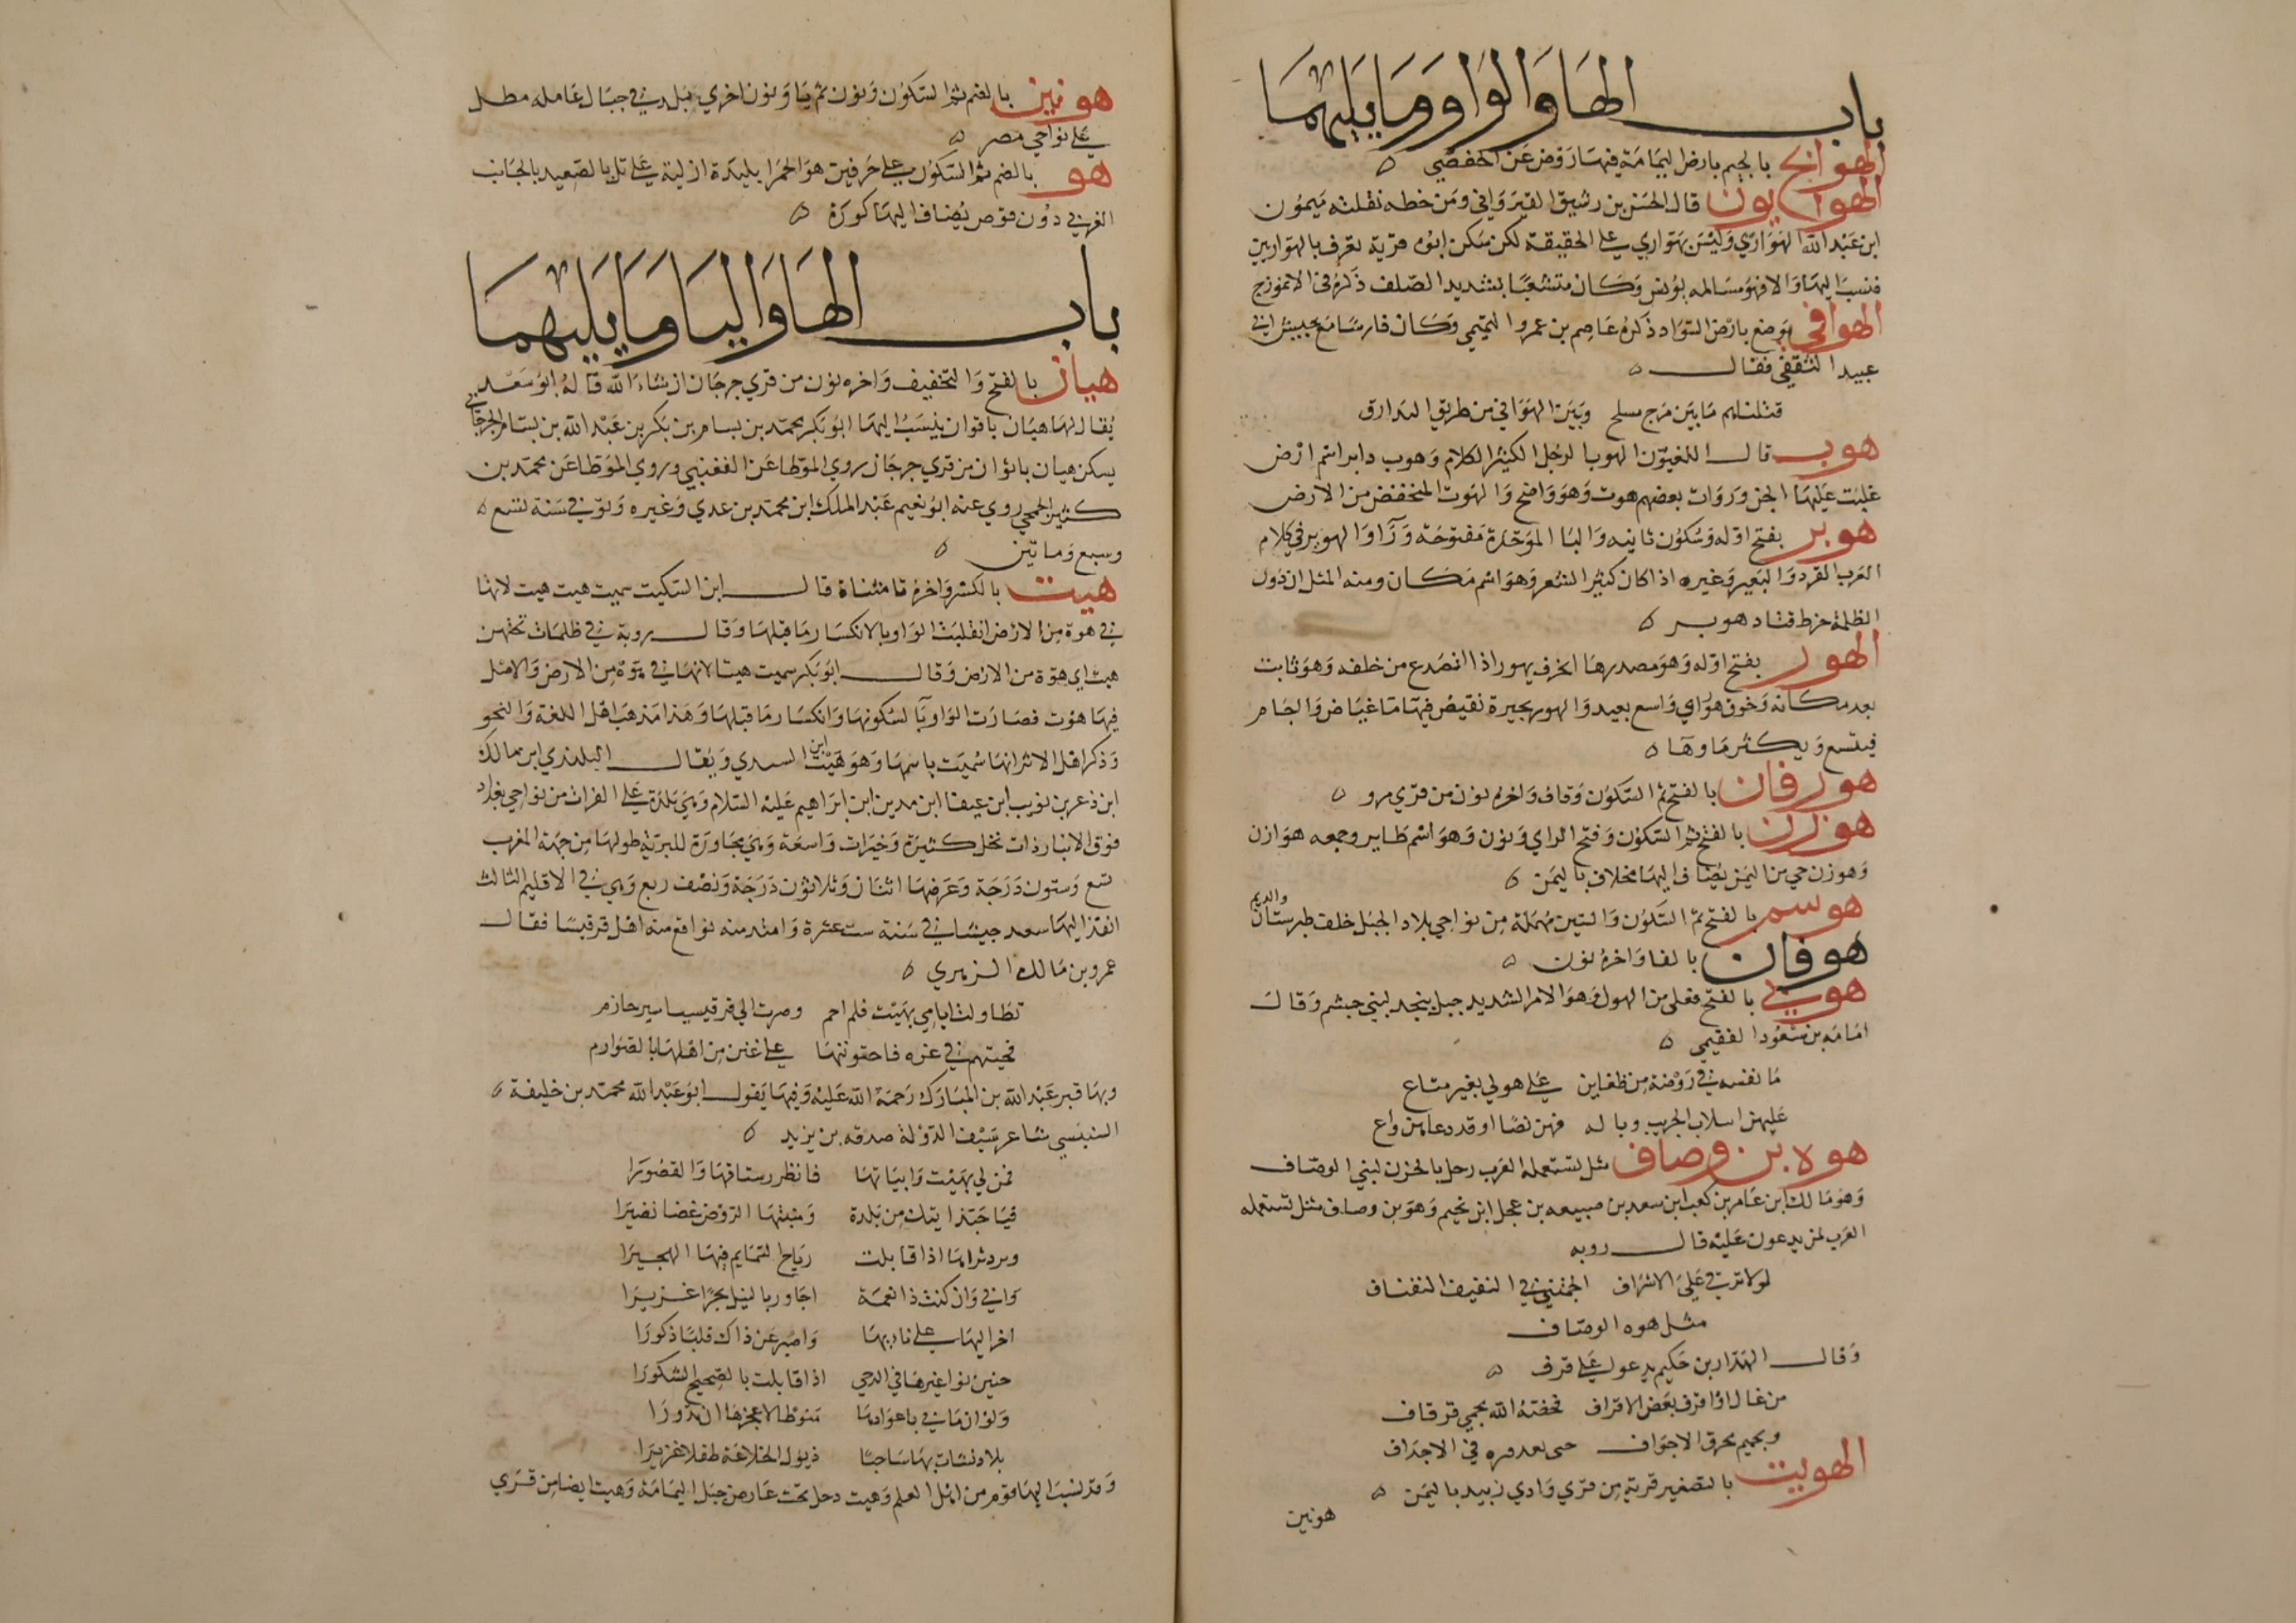 باب الها والواو وما يليهما
الهوابج بالجيم بارض اليمامة فيها روض عن الحفصي
الهواريون قال الحسن بن رشيق القيرواني ومن خطه نقلته ميمون
ابن عبد الله الهواري وليس بهواري على الحقيقة لكن سكن ابوه قرية تعرف بالهواريين
فنسب اليها والا فهو مسالمه بونس وكان متشعبا شديد الصلف ذكره في الانموذج
الهوافي موضع بارض السواد ذكره عاصم بن عمرو التميمي وكان فارسا مع جيش ابي
عبيد الثقفي فقال
قتلناهم ما بين مرج مسلح وبين الهوافي من طريق البدارق
هوب قال اللغويون الهوب الرجل الكثير الكلام وهوب دابر اسم ارض
غلبت عليها الجن ورواه بعضهم هوت وهو واضح والهوت المنخفض من الارض
هوبر بفتح اوله وسكون ثانيه والبا الموحدة مفتوحة ورا والهوبر في كلام
العرب القرد والبعير وغيره اذا كان كثير الشعر وهو اسم مكان ومنه المثل ان دون
الظلمة خرط قتاد هوبر
الهور بفتح اوله وهو مصدر هار الجرف يهور اذا انصدع من خلفه وهو ثابت
بعد مكانه وخرق هور اي واسع بعيد والهور بحيرة تفيض فيها ما غياض واجام
فيتسع ويكثر ماوها
هورقان بالفتح ثم السكون وقاف واخره نون من قري مرو
هوزن بالفتح ثم السكون وفتح الزاي ونون وهو اسم طاير وجمعه هوازن
وهوزن حي من اليمن يضاف اليها مخلاف باليمن
هوسم بالفتح ثم السكون والسين مهملة من نواحي بلاد الجبل خلف طبرستان والديلم
هوفان بالفا واخره نون
هولي بالفتح فعلى من الهول وهو الامر الشديد جبل بنجد لبني جشم وقال
امامه بن مسعود الفقيمي
ما نفسه في روضة من ظغاين على هولي بغير متاع
عليهن اسلاب الحريب وباله فهن نضا او قد دعاهن واع
هوه بن وصاف مثل تستعمله العرب رحل بالحزن لبني الوصاف
وهو مالك ابن عامر بن كعب ابن سعد بن ضبيعه بن عجل ابن لجيم وهوه بن وصاف مثل تستعمله
العرب لمن يدعون عليه قال روبه
لولا ترقي على الاشراف اقحمتني في النفنف النفناف
مثل هوه الوصاف
وقال الهدار بن حكيم يدعو على قرف
من غال او اقرف بعض الاقراف فخفته الله بحمي قرقاف
وبحميم محرق الاجواف حتى بعد مره في الاجداف
الهويت بالتصغير قرية من قري وادي زبيد باليمن
هونين
هونين بالضم ثم السكون ونون ثم يا ونون اخري بلد في جبال عامله مطل
على نواحي مصر
هو بالضم ثم السكون على حرفين هو الحمرا بليدة ازلية على تل بالصعيد بالجانب
الغربي دون قوص يضاف اليها كورة
باب الها واليا وما يليهما
هيان بالفتح والتخفيف واخره نون من قري جرجان ان شاء الله قاله ابو سعد
يقال لها هيان باقوان ينسب اليها ابو بكر محمد بن بسام بن بكر بن عبد الله بن بسام الجرجاني
يسكن هيان باقوان من قري جرجان روي الموطا عن القعنبي وروي الموطا عن محمد بن
كثير الجمحي روي عنه ابو نعيم عبد الملك ابن محمد بن عدي وغيره وتوفي في سنة تسع
وسبع وماتين
هيت بالكسر واخره تا مثناة قال ابن السكيت سميت هيت هيت لانها
في هوة من الارض انقلبت الواو يا لانكسار ما قبلها وقال روبة في ظلمات تحتهن
هيت اي هوة من الارض وقال ابو بكر سميت هيتا لانها في هوة من الارض والاصل
فيها هوت فصارت الواو يا لسكونها وانكسار ما قبلها وهذا مذهب اهل اللغة والنحو
وذكر اهل الاثر انها سميت باسمها وهو هيت ابن السبدي ويقال البلندي ابن مالك
ابن ذعر بن بويب ابن عيفا ابن مدين ابن ابراهيم عليه السلام وهي بلدة على الفرات من نواحي بغداد
فوق الانبار ذات نخل كثيرة وخيرات واسعة وهي مجاورة للبرية طولها من جهة المغرب
تسع وستون درجة وعرضها اثنان وثلاثون درجة ونصف ربع وهي في الاقليم الثالث
انفذ اليها سعد جيشا في سنة ست عشرة وامتد منه نواقع منه اهل قرقيسا فقال
عمرو بن مالك الزهري
تطاولت ايامي بهيت فلم احم وصرت الى قرقيسيا سير حازم
فجيتهم في غره فاحتويتها على غبن من اهلها بالصوارم
وبها قبر عبد الله بن المبارك رحمة الله عليه وفيها يقول ابو عبد الله محمد بن خليفة
السنبسي شاعر سيف الدولة صدقه بن يزيد
فمن لي بهيت وابياتها فانظر رستاقها والقصورا
فيا حبذا تيك من بلدة ومنبتها الروض غضا نضيرا
وبرد ثراها اذا قابلت رياح السمايم فيها الهجيرا
واني وان كنت ذا نعمة اجاور بالنيل بحرا غزيرا
احن اليها على نايها واصبر عن ذاك قلبا ذكورا
حنين نواعيرها في الدجي اذا قابلت بالضجيج الشكورا
ولو ان ما بي باعوادها منوطا لاعجزها ان تدورا
بلاد نشات بها ساحبا ذيول الخلاعة طفلا غزيرا
وقد نسب اليها قوم من اهل العلم وهيت دحل تحت عارض جبل اليمامة وهيت ايضا من قري